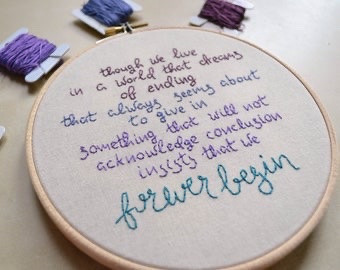 though we live
in a world that dreams
of ending
that always seems about
to give in
something that will not
acknowledge conclusion
insists that we
forever begin